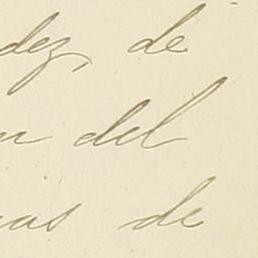 dez, de
n del
nas de